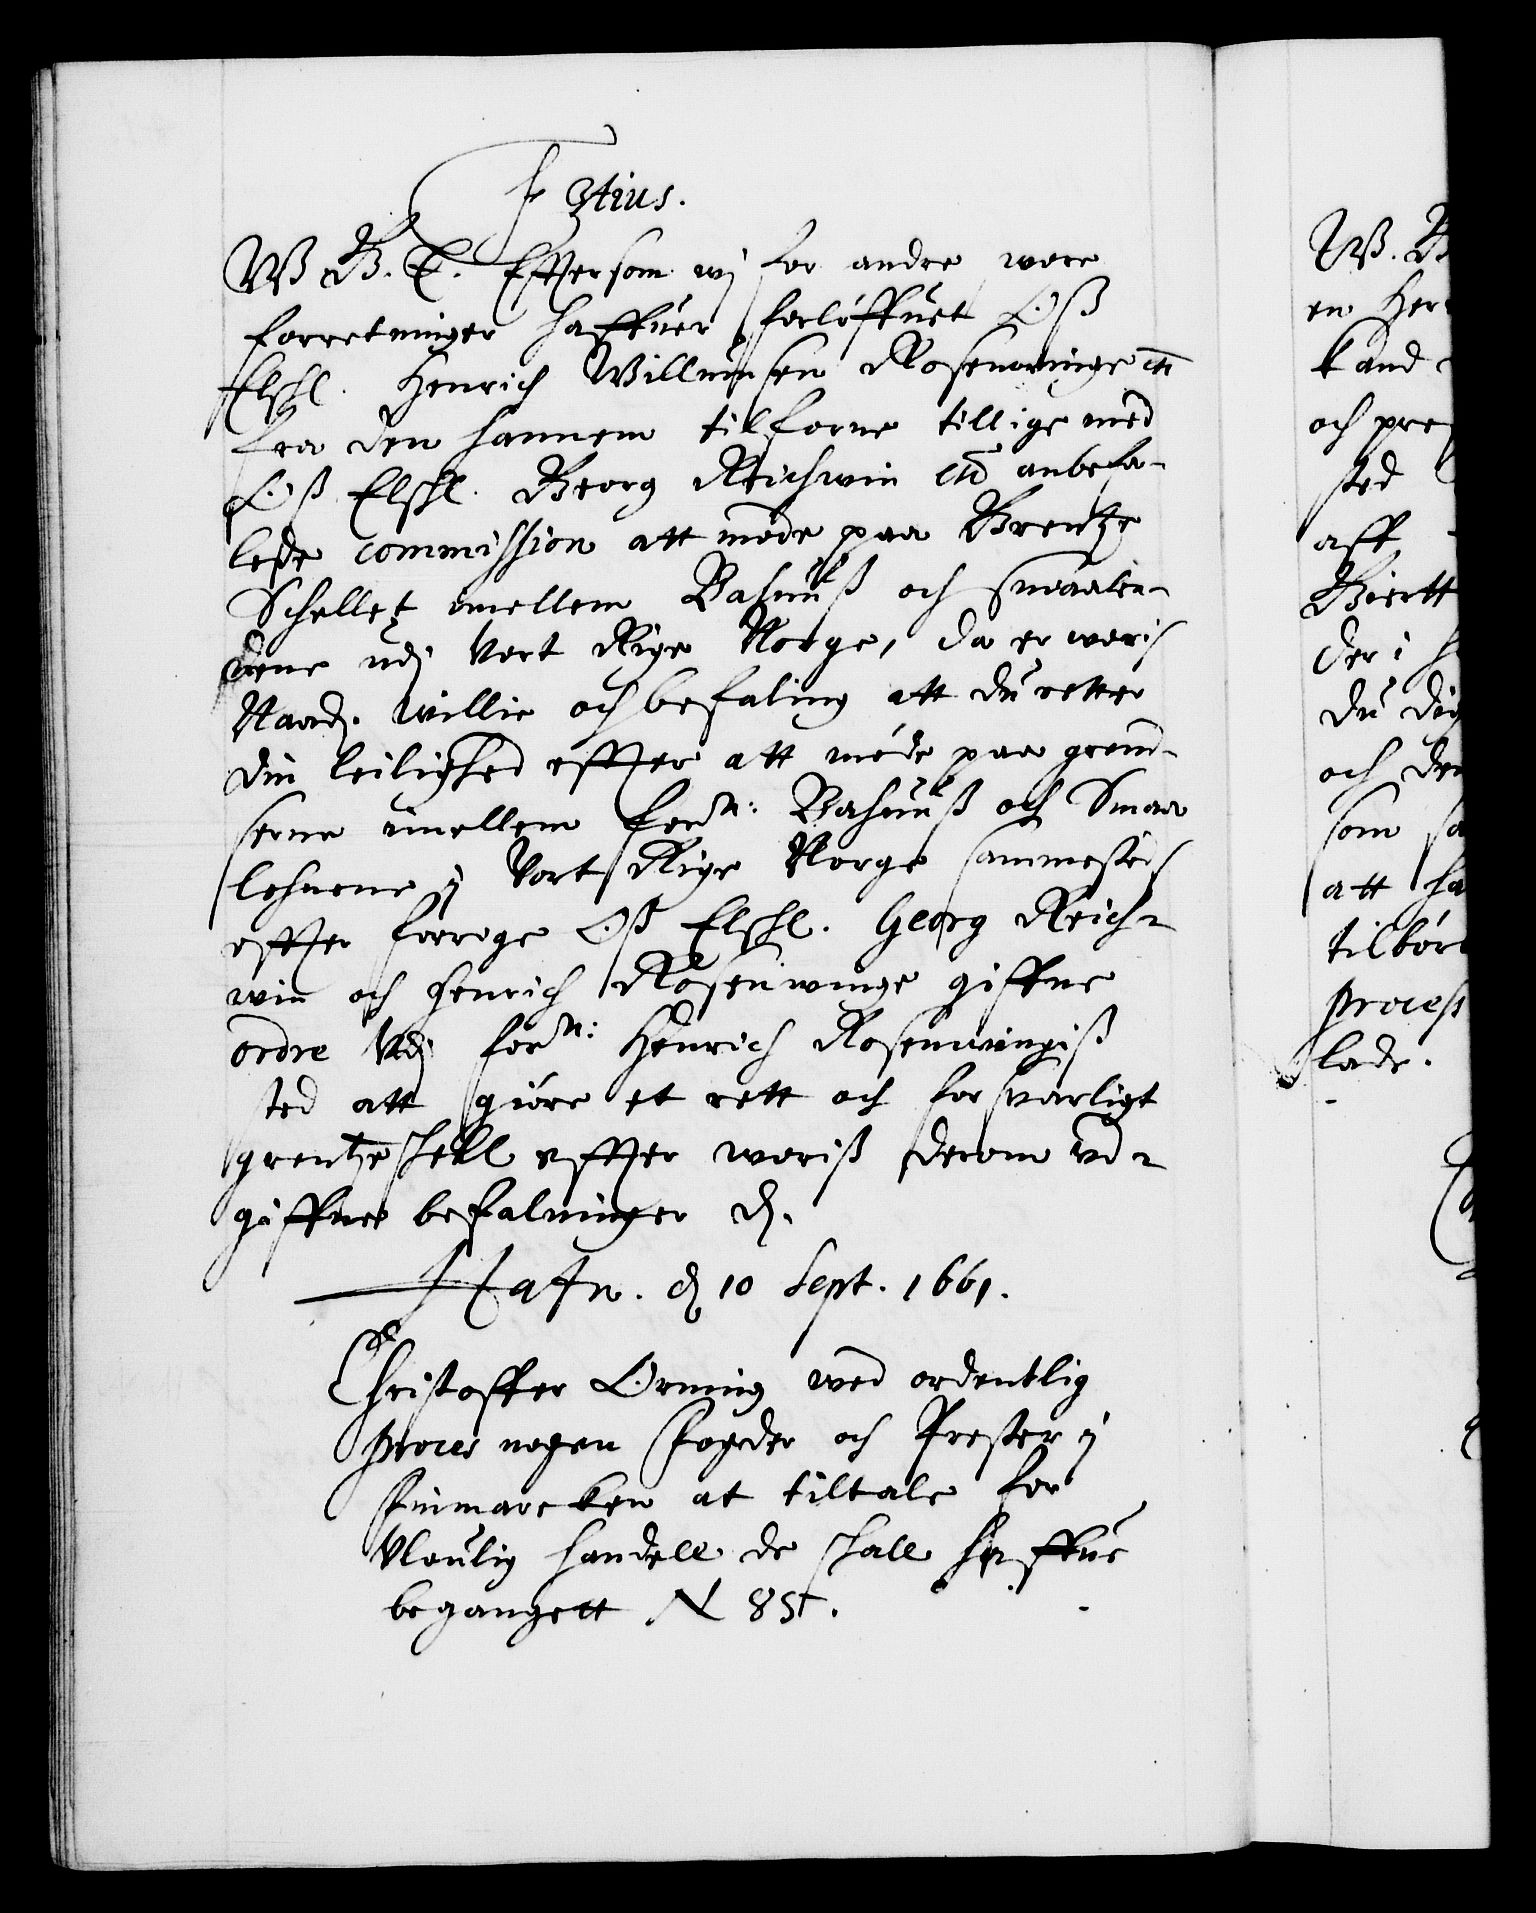 F 3tius.
W B. T. Efftersom wj for andre wore
forretninger haffuer forløffuet Oß
Elskl. Henrich Willumsen Rosenwinge etc
fra den hannem tilforne tillige med
Oß Elskl. Georg Reichwin etc anbefa-
lede commission att møde paa Grentze
Schellet imellem Bahuuß och smaalen-
dene udj Vort Rige Norge, da er woris
Naad. willie och befaling att du retter
din leilighed effter att møde paa grend-
serne imellem forn: Bahuuß och Smaa
lehnene j Vort Rige Norge sammested
effter forrige Oß Elskl. Georg Reich-
win och Henrich Rosenwinge giffne
ordre Udj forn: Henrich Rosenwingiß
sted att giøre et rett och forsuarligt
grentzeskell effter woriß derom ud-
giffne befalninger d.
Hafn. d 10 Sept. 1661.
Christoffer Orning wed ordentlig
proces nogen Fogder och Prester j
Finmarcken at tiltale for
Uloulig handell de skall haffue
begangett N 85.
W. B
en Her
kand
och pre
sted
aff
Giertt
der i h
du dig
och den
som sa
att ha
tilbør
process
lade.